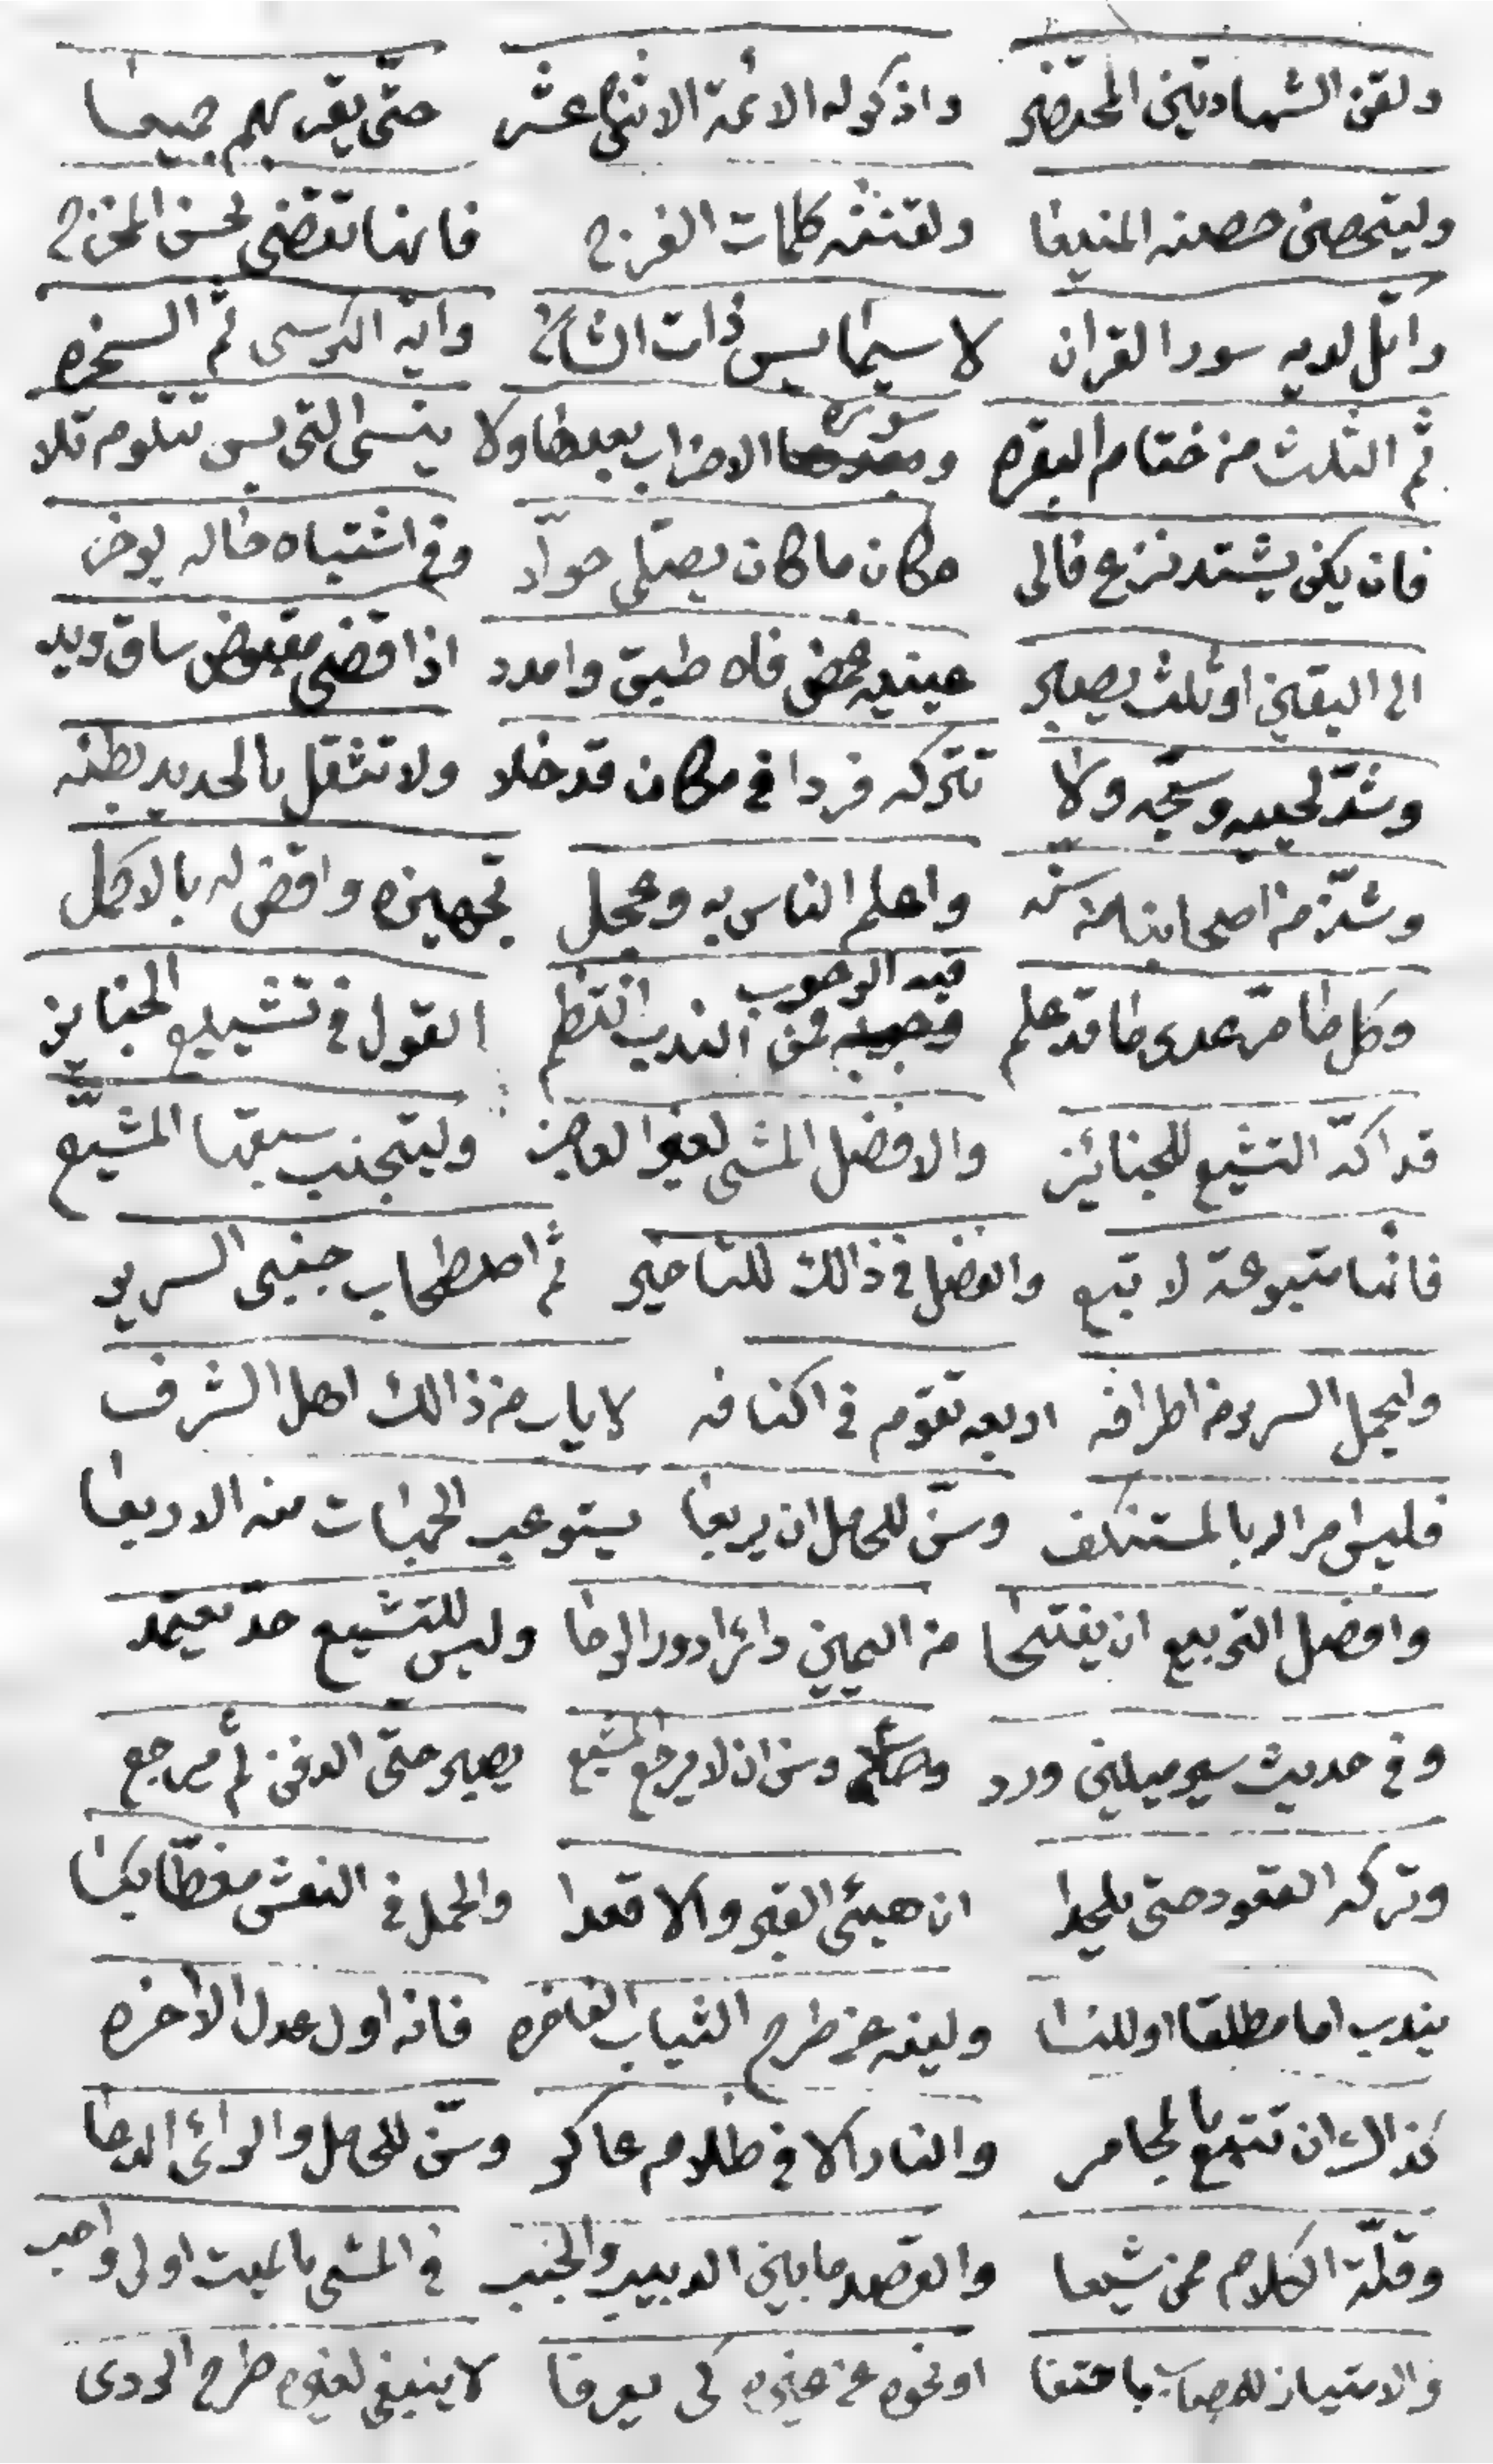 ولقن الشهادتين المحتضر واذكر له الائمة الاثنى عشر حتى يقر بهم جميعا
وليتحصن حصنه المنيعا ولقننه كلمات الفرج فانها تقضى بحسن المخرج
واتل لديه سور القران لا سيما يس ذات الشان واية الكرسى ثم السخره
ثم الثلث من ختام البقره وسورة الاحزاب بعدها ولا ينسى التى يس تتلو م تلا
فان يكن يشتد نزع فالى مكان ما كان يصلى حولا وفى اشتباه حاله يوخر
الى اليقين او ثلث يصبر عينيه غمض فاه طبق وامدد اذا قضى مقبوض ساق ويد
وشد لحييه وسجه ولا تتركه فردا فى مكان قد خلا ولا تثقل بالحديد بطنه
وشذ من اصحابنا من سنه واعلم الناس به وعجل تجهيزه واقض له بالاكمل
وكل ما مر عدى ما قد علم فيه الوجوب فمن الندب انتظم القول فى تشييع الجنايز
قد اكد التشيع للجنائز والافضل المشى لغير العاجز وليتجنب سبقها المشيع
فانها متبوعة لا تتبع والفضل فى ذالك للتاخير ثم اصطحاب جنبى السرير
وليحمل السرير من اطرافه اربعه تقوم فى اكنافه لا ياب من ذالك اهل الشرف
فليس امر الله بالمستنكف وسن للحامل ان يربعا يستوعب الجهات منه الاربعا
وافضل التربيع ان يفتتحا من اليمين دائرا دور الرحا وليس للتشيع حد يعتمد
وفى حديث سير ميلين ورد وسن ان لا يرجع المشيع يصبر حتى الدفن ثم يرجع
وتركه القعود حتى يلحدا ان هيئى القبر والا قعدا والحمل فى النعش مغطا بكسا
يندب اما مطلقا او للنسا ولينه عن طرح الثياب الفاخره فانه اول عدل الاخره
كذالك ان تتبع بالمجامر والنار الا فى ظلام عاكر وسن للحامل والرائى الدعا
وقلة الكلام ممن شيعا والقصد ما بين الدبيب والخبب فى المشى بالميت اولى واحب
والامتياز للمصاب باحتفا او نحوه عن غيره كى يعرفا لا ينبغى لغيره طرح الردى